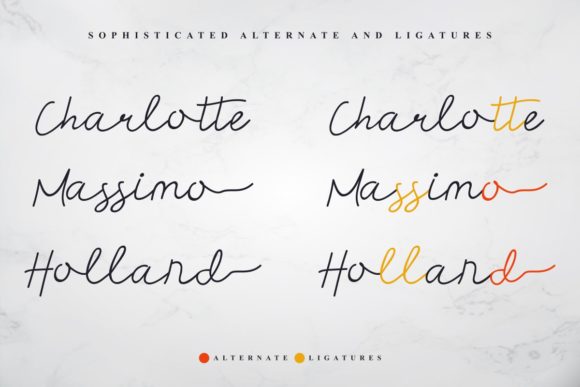 SOPHISTICATED ALTERNATE AND LIGATURES
Charlotte Charlotte
Massimo Massimo
Holland Holland
ALTERNATE LIGATURES